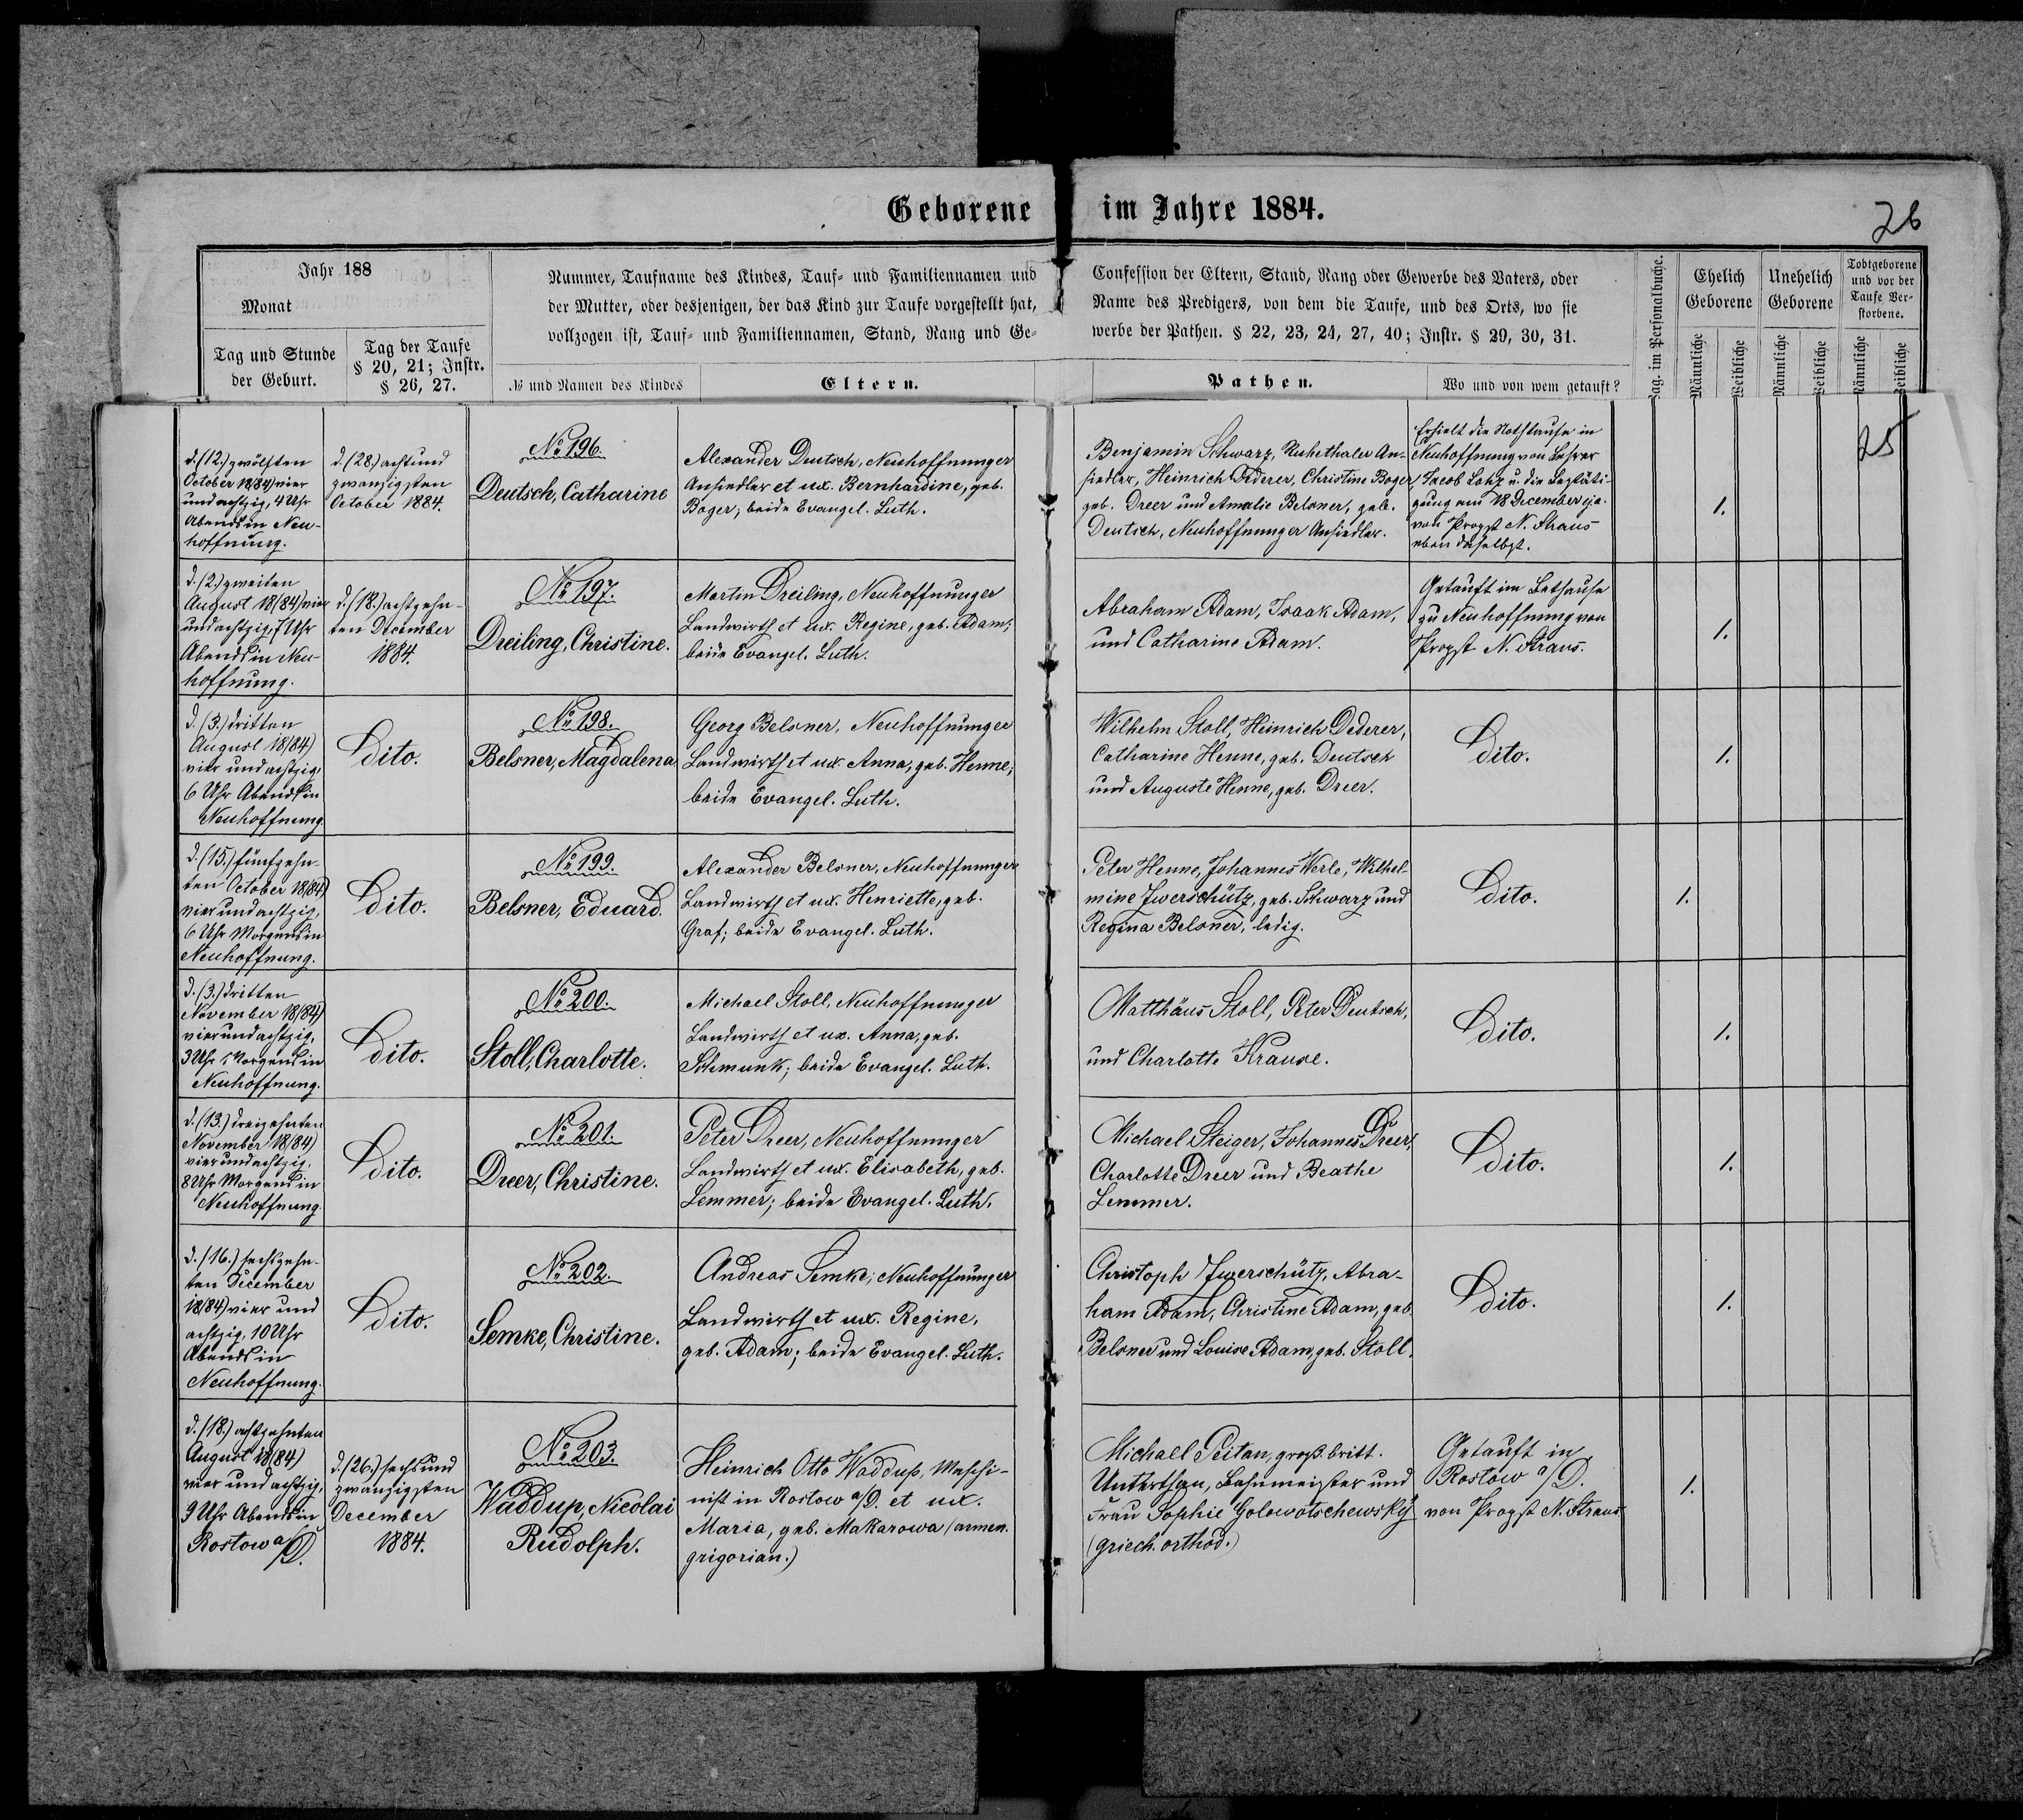 Geborene im Jahre 1884.
26
Jahr 188
Monat
Tag und Stunde
der Geburt.
Tag der Taufe
§ 20, 21; Instr.
§ 26, 27.
Nummer, Taufname des Kindes, Tauf- und Familiennamen und
der Mutter, oder desjenigen, der das Kind zur Taufe vorgestellt hat,
vollzogen ist, Tauf- und Familiennamen, Stand, Rang und Ge-
№ und Namen des Kindes
Eltern.
Confession der Eltern, Stand, Rang oder Gewerbe des Vaters, oder
Name des Predigers, von dem die Taufe, und des Orts, wo sie
werbe der Pathen. § 22, 23, 24, 27, 40; Instr. § 29, 30, 31.
Pathen.
Wo und von wem getauft?
Pag. im Personalbuche.
Ehelich
Geborene
Unehelich
Geborene
Todtgeborene
und vor der
Taufe Ver-
storbene.
Männliche
Weibliche
Männliche
Weibliche
Männliche
Weibliche
25
d. (12.) zwölften
October 18(84) vier
und achtzig, 4 Uhr
Abends in Neu-
hoffnung.
d. (28.) acht und
zwanzigsten
October 1884.
No 196.
Deutsch, Catharine
Alexander Deutsch, Neuhoffnunger
Ansiedler et ux. Bernhardine, geb.
Boger; beide Evangel. Luth.
Benjamin Schwarz, Ruhethaler An-
siedler, Heinrich Dederer, Christine Boger,
geb. Dreer und Amalie Belsner, geb.
Deutsch, Neuhoffnunger Ansiedler.
Erhielt die Nothtaufe in
Neuhoffnung von Lehrer
Jacob Lotz u. die Bestäti-
gung am 18 December eja.
von Propst N. Straus
eben daselbst.
1.
d. (2.) zweiten
August 18(84) vier
und achtzig, 7 Uhr
Abends in Neu-
hoffnung.
d. (18.) achtzehn-
ten December
1884.
No 197.
Dreiling, Christine.
Martin Dreiling, Neuhoffnunger
Landwirth et ux. Regine, geb. Adam;
beide Evangel. Luth.
Abraham Adam, Isaak Adam,
und Catharine Adam.
Getauft im Bethause
zu Neuhoffnung von
Propst N. Straus.
1.
d. (3.) dritten
August 18(84)
vier und achtzig,
6 Uhr Abends in
Neuhoffnung
Dito.
No 198.
Belsner, Magdalena
Georg Belsner, Neuhoffnunger
Landwirth et ux. Anna, geb. Henne;
beide Evangel. Luth.
Wilhelm Stoll, Heinrich Dederer,
Catharine Henne, geb. Deutsch
und Auguste Henne, geb. Dreer.
Dito.
1.
d. (15.) fünfzehn-
ten October 18(84)
vier und achtzig,
6 Uhr Morgens in
Neuhoffnung.
Dito.
No 199.
Belsner, Eduard.
Alexander Belsner, Neuhoffnunger
Landwirth et ux. Henriette, geb.
Graf; beide Evangel. Luth.
Peter Henne, Johannes Werle, Wilhel-
mine Zwerschütz, geb. Schwarz und
Regina Belsner, ledig.
Dito.
1.
d. (3.) dritten
November 18(84)
vier und achtzig,
3 Uhr Morgens in
Neuhoffnung.
Dito.
No 200.
Stoll, Charlotte.
Michael Stoll, Neuhoffnunger
Landwirth et ux. Anna, geb.
Schmunk; beide Evangel. Luth.
Matthäus Stoll, Peter Deutsch,
und Charlotte Krause.
Dito.
1.
d. (13.) dreizehnten
November 18(84)
vier und achtzig,
8 Uhr Morgens in
Neuhoffnung.
Dito.
No 201.
Dreer, Christine.
Peter Dreer, Neuhoffnunger
Landwirth et ux. Elisabeth, geb.
Lemmer; beide Evangel. Luth.
Michael Steiger, Johannes Dreer,
Charlotte Dreer und Beathe
Lemmer.
Dito.
1.
d. (16.) sechszehn-
ten December
18(84) vier und
achtzig, 10 Uhr
Abends in
Neuhoffnung.
Dito.
No 202.
Semke, Christine.
Andreas Semke, Neuhoffnunger
Landwirth et ux. Regine,
geb. Adam; beide Evangel. Luth.
Christoph Zwerschütz, Abra-
ham Adam, Christine Adam, geb.
Belsner und Louise Adam, geb. Stoll.
Dito.
1.
d. (18.) achtzehnten
August 18(84)
vier und achtzig,
9 Uhr Abends in
Rostow a/D.
d. (26.) sechs und
zwanzigsten
December
1884.
No 203.
Waddup, Nicolai
Rudolph.
Heinrich Otto Waddup, Maschi-
nist in Rostow a/D. et ux.
Maria, geb. Makarowa (armen.
grigorian.)
Michael Peitan, groß. britt.
Unterthan, Bahnmeister und
Frau Sophie Golowotschewsky
(griech. orthod.)
Getauft in
Rostow a/D.
von Propst N. Straus
1.